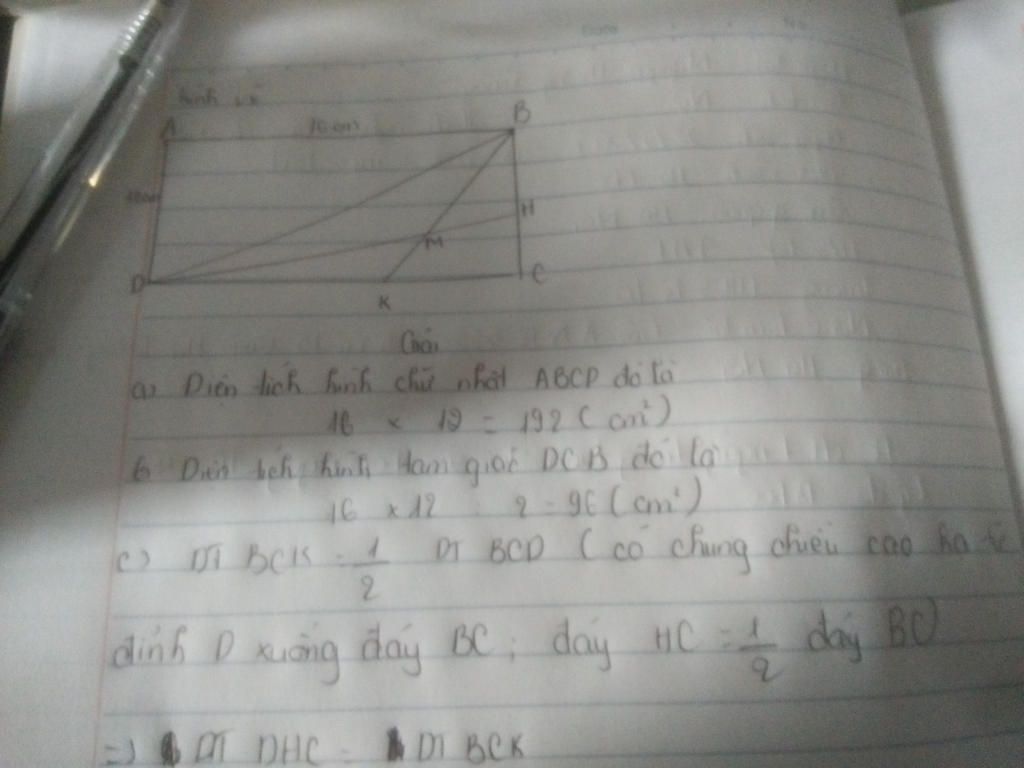 Date No
hình vẽ
A 16cm B
12cm
H
M
D C
K
Giải
a) Diện tích hình chữ nhật ABCD đó là
16 x 12 = 192 ( cm²)
b Diện tích hình tam giác DCB đó là
16 x 12 : 2 = 96 ( cm²)
c) DT BCK = 1/2 DT BCD ( có chung chiều cao hạ từ
đỉnh D xuống đáy BC ; đáy HC = 1/2 đáy BC)
=> DT DHC = DT BCK